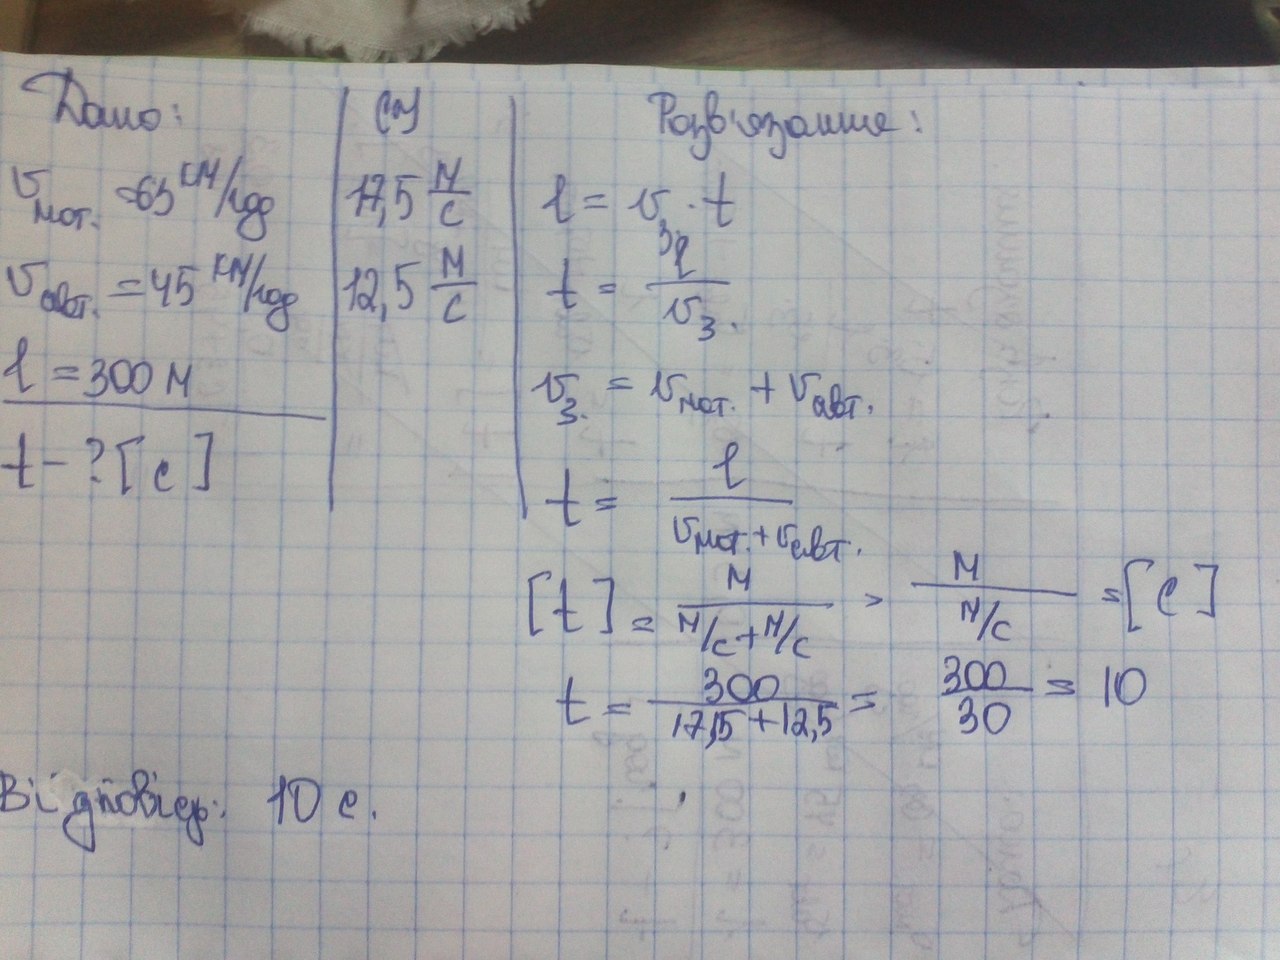 Дано:
v мот. = 63 км/год
v авт. = 45 км/год
l = 300 м
t - ? [c]
СИ
17,5 м/с
12,5 м/с
Розв'язання:
l = v з · t
t = l / v з.
v з. = v мот. + v авт.
t = l / v мот. + v авт.
[t] = м / м/с + м/с = м / м/с = [c]
t = 300 / 17,5 + 12,5 = 300 / 30 = 10
Відповідь: 10 с.